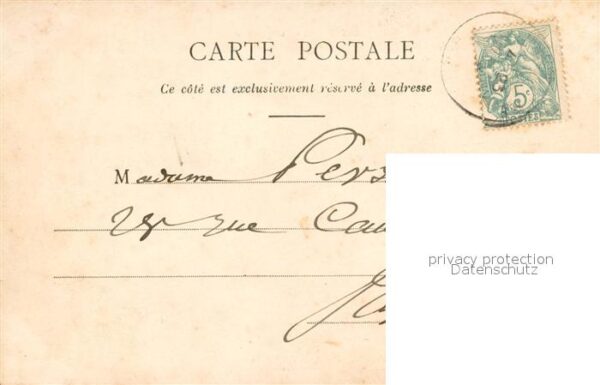 CARTE POSTALE
Ce côté est exclusivement réservé à l'adresse
5c
POSTES
Madame Pers
28 rue Cau
privacy protection
Datenschutz